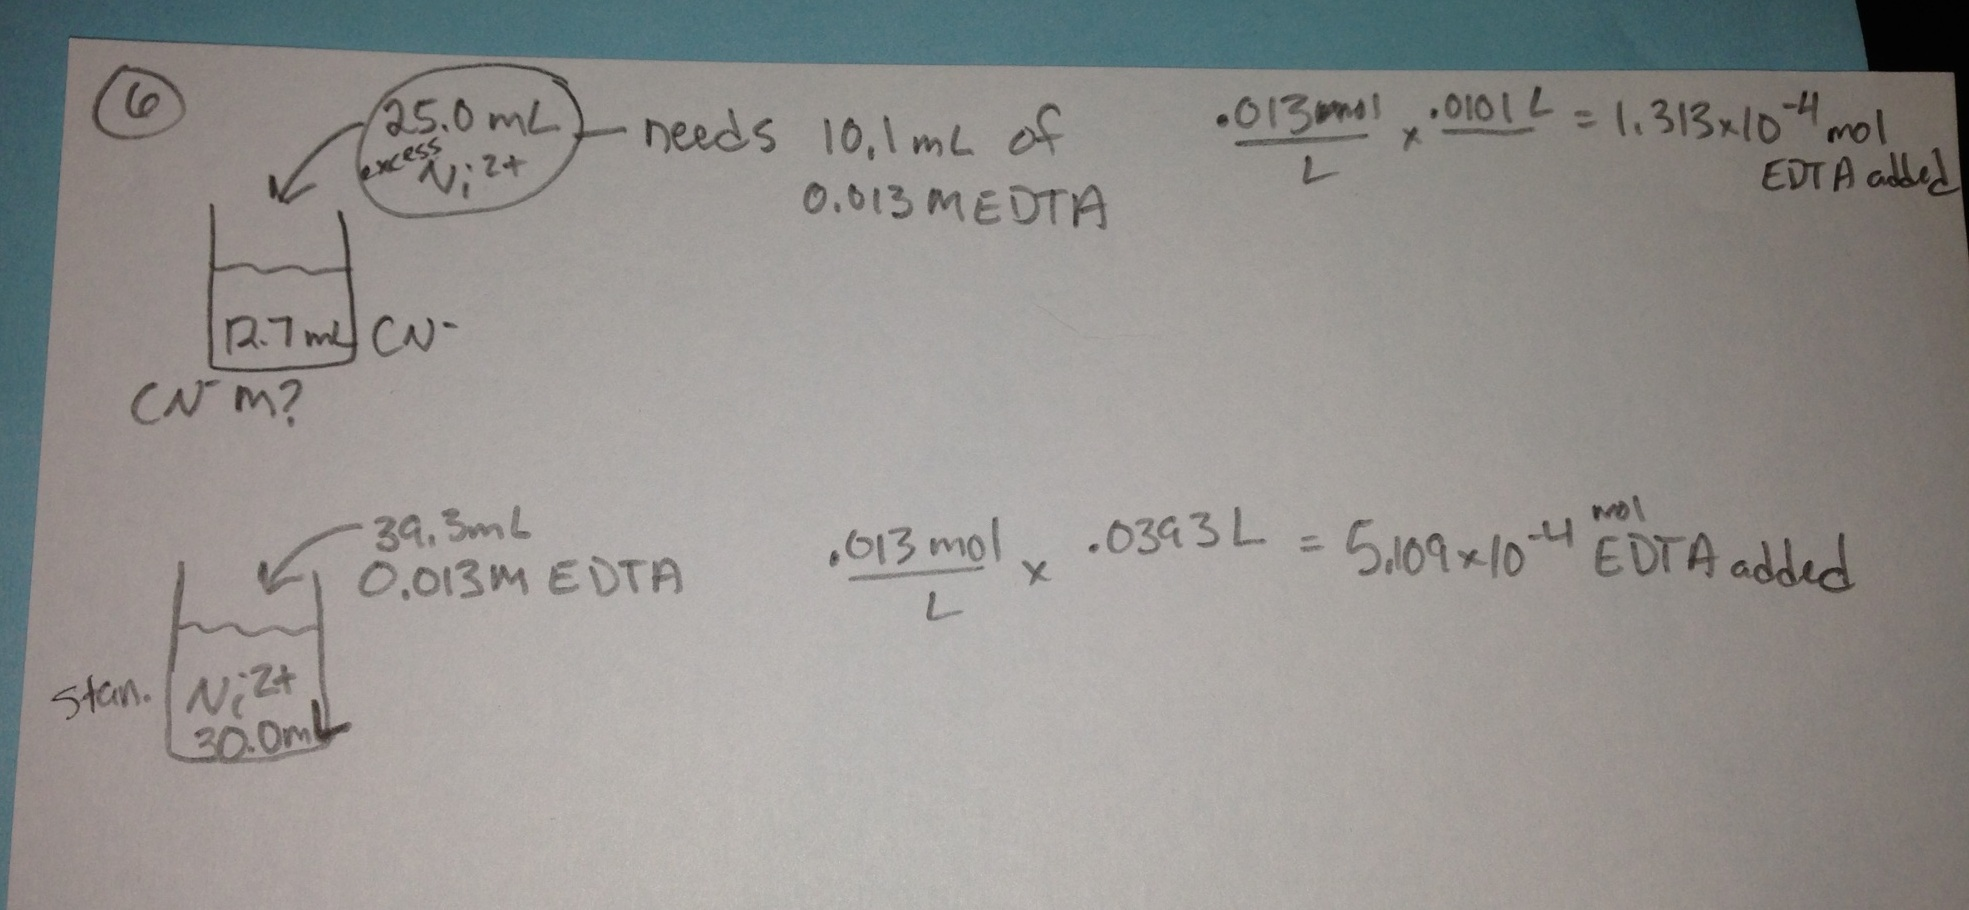 6
25.0 mL
excess
Ni2+
needs 10.1 mL of
0.013 M EDTA
.013 mol
L
x .0101 L = 1.313x10-4 mol
EDTA added
12.7 mL CN-
CN- M?
39.3mL
0.013M EDTA
.013 mol
L
x .0393 L = 5.109x10-4 mol
EDTA added
stan.
Ni2+
30.0mL